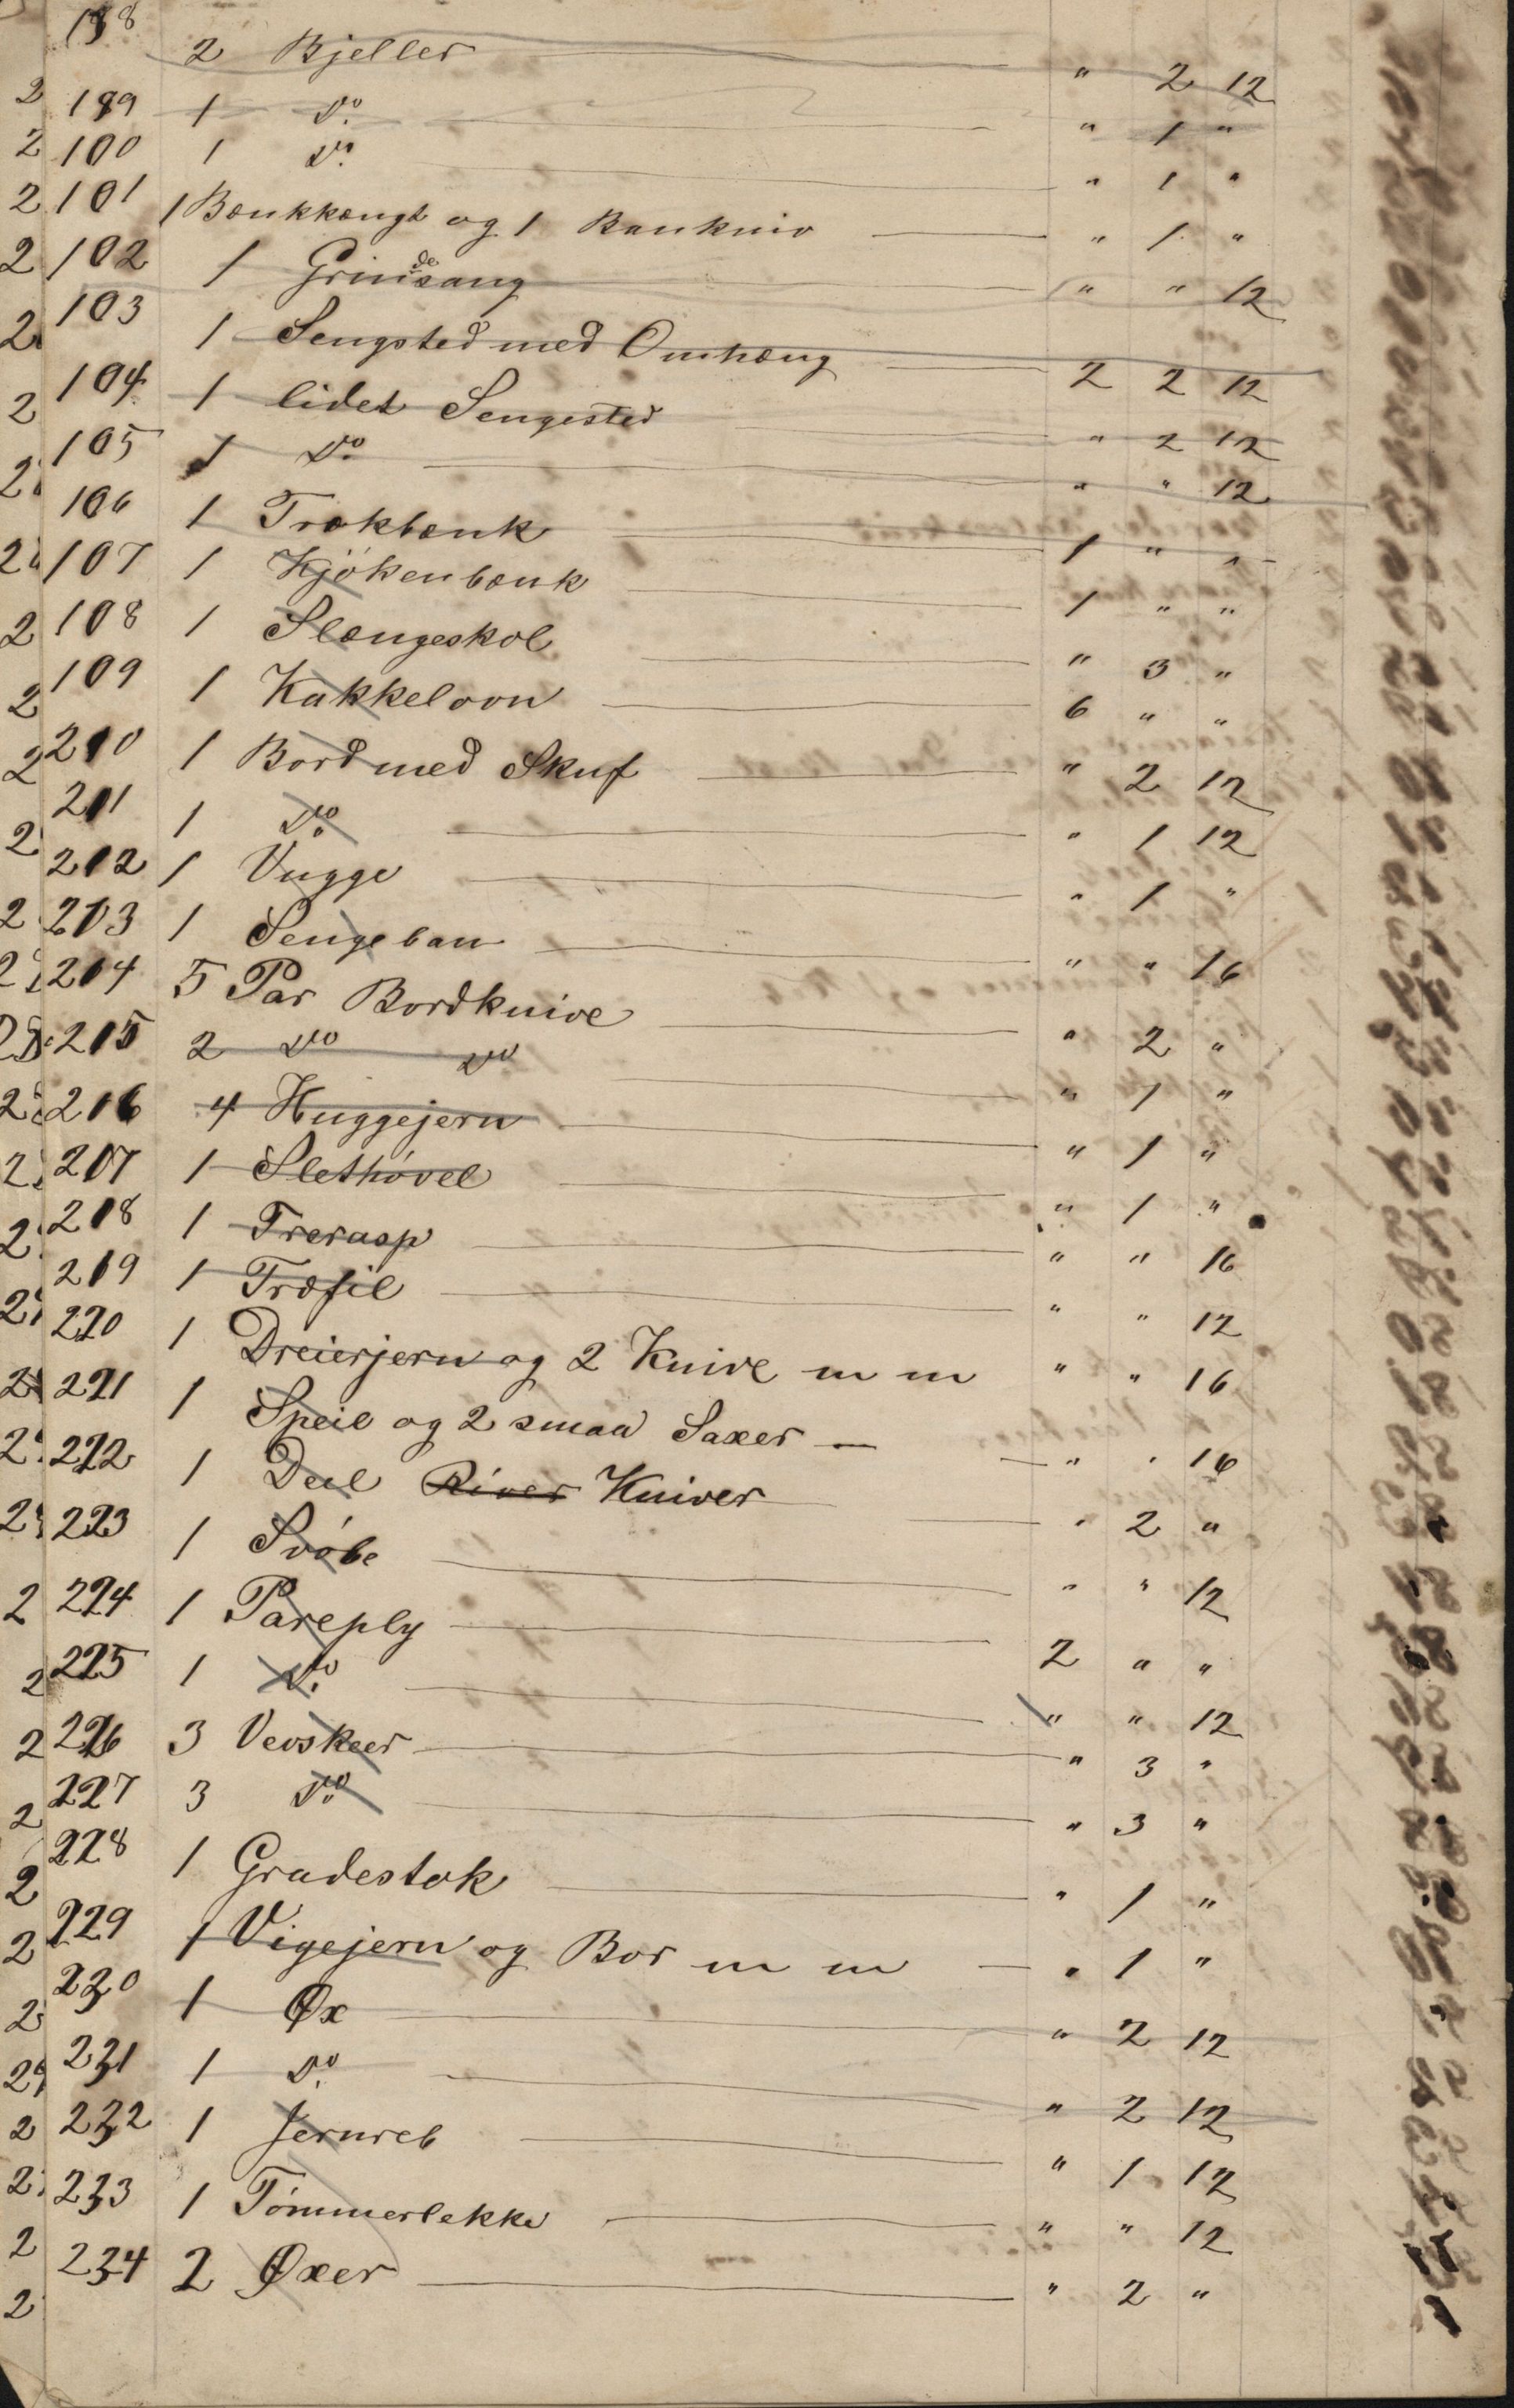 188 2 Bjeller " 2 12
189 1 Do. " 1 "
100 1 Do. " 1 "
101 1 Bænkkængt og 1 Bankniv " 1 "
102 1 Grindesang " " 12
103 1 Sengsted med Omhæng 2 2 12
104 1 lidet Sengested " 2 12
105 1 Do. " " 12
106 1 Trækbænk 1 " "
107 1 Kjökenbænk 1 " "
108 1 Slængeskol " 3 "
109 1 Kakkelovn 6 " "
210 1 Bord med Skuf " 2 12
211 1 Do. " 1 12
212 1 Vugge " 1 "
213 1 Sengeban " " 16
214 5 Par Bordknive " 2 "
215 2 Do Do " 1 "
216 4 Huggejern " 1 "
217 1 Slethövel " 1 "
218 1 Trerasp " " 16
219 1 Træfil " " 12
220 1 Dreierjern og 2 Knive m m " " 16
221 1 Speil og 2 smaa Saxer " " 16
222 1 Deel River Kniver " 2 "
223 1 Svöbe " " 12
224 1 Pareply 2 " "
225 1 Do. " " 12
226 3 Vevskeer " 3 "
227 3 Do. " 3 "
228 1 Gradestok " 1 "
229 1 Vigejern og Bor m m " 1 "
230 1 Øx " 2 12
231 1 Do. " 2 12
232 1 Jernreb " 1 12
233 1 Tömmerlekke " " 12
234 2 Øxer " 2 "